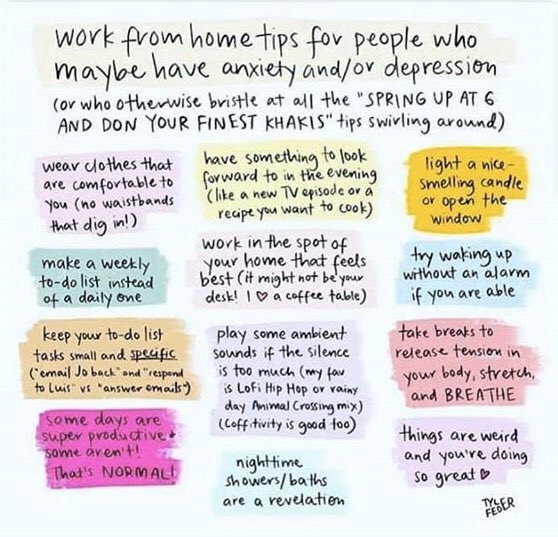 work from home tips for people who
maybe have anxiety and/or depression
(or who otherwise bristle at all the "SPRING UP AT 6
AND DON YOUR FINEST KHAKIS" tips swirling around)
wear clothes that
are comfortable to
you (no waistbands
that dig in!)
have something to look
forward to in the evening
(like a new TV episode or a
recipe you want to cook)
light a nice-
smelling candle
or open the
window
make a weekly
to-do list instead
of a daily one
work in the spot of
your home that feels
best (it might not be your
desk! I ♥ a coffee table)
try waking up
without an alarm
if you are able
keep your to-do list
tasks small and specific
("email Jo back" and "respond
to Luis" vs "answer emails")
play some ambient
sounds if the silence
is too much (my fav
is LoFi Hip Hop or rainy
day Animal Crossing mix)
(Coffitivity is good too)
take breaks to
release tension in
your body, stretch,
and BREATHE
some days are
super productive +
some aren't!
That's NORMAL!
nighttime
showers/baths
are a revelation
things are weird
and you're doing
so great ♥
TYLER
FEDER